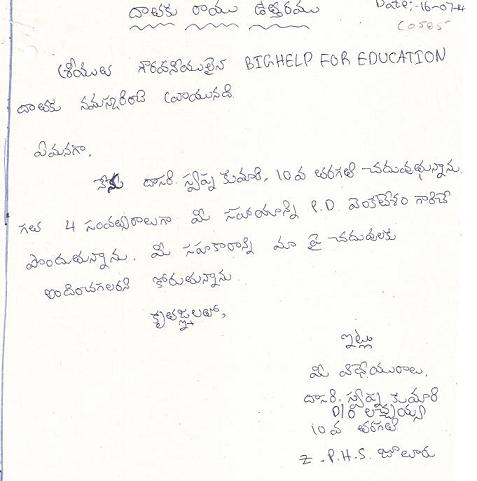 దాతకు రాయు ఉత్తరము
Date:-16-07-4
శ్రీయుత గౌరవనీయులైన BIGHELP FOR EDUCATION
దాతకు నమస్కరించి వ్రాయునది.
ఏమనగా,
నేను దాసరి. స్వప్న కుమారి, 10 వ తరగతి చదువుతున్నాను.
గత 4 సంవత్సరాలుగా మీ సహాయాన్ని P.D. వెంకటేశం గారిచే
పొందుతున్నాను. మీ సహకారాన్ని మా పై చదువులకు
అందించగలరని కోరుతున్నాను.
కృతజ్ఞతలతో,
ఇట్లు
మీ విధేయురాలు,
దాసరి. స్వప్న కుమారి
D/o లచ్చయ్య
10 వ తరగతి
Z.P.H.S. జూలూరు